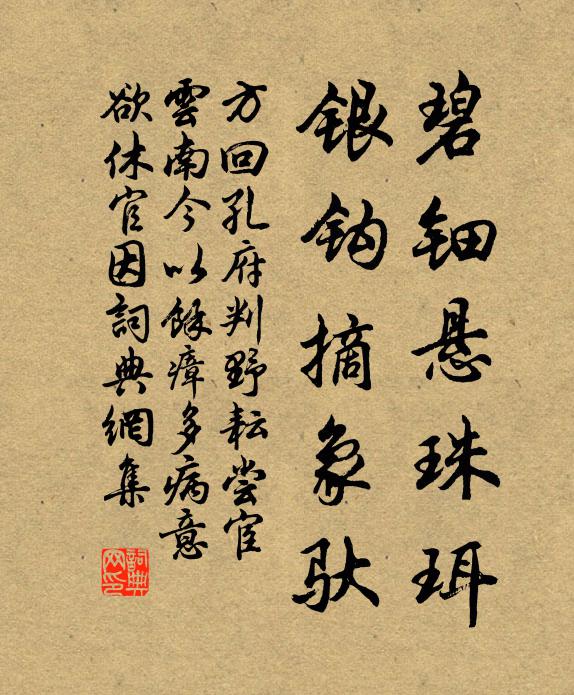 碧钿悬珠珥
银钩摘象驮
方回孔府判野耘尝宦
雲南今以餘瘴多病意
欲休官因詞典網集
詞典
网印